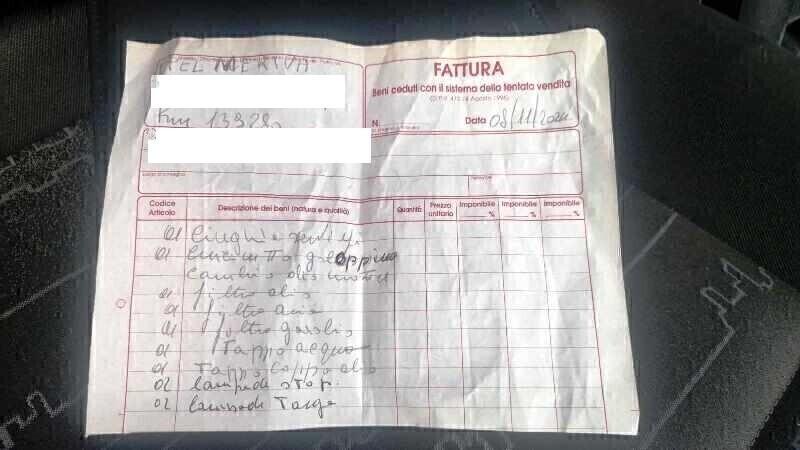 OPEL MERIVA
Km 13328
FATTURA
Beni ceduti con il sistema della tentata vendita
N. Data 08/11/2021
Codice Articolo Descrizione dei beni (natura e qualità) Quantità Prezzo unitario Imponibile % Imponibile % Imponibile %
01 Cinghia servizi
01
Cambio olio motore
01 filtro olio
01 filtro aria
01 filtro gasolio
01 Tappo acqua
01 Tappo coppa olio
02 lampade stop.
02 lampade Targa